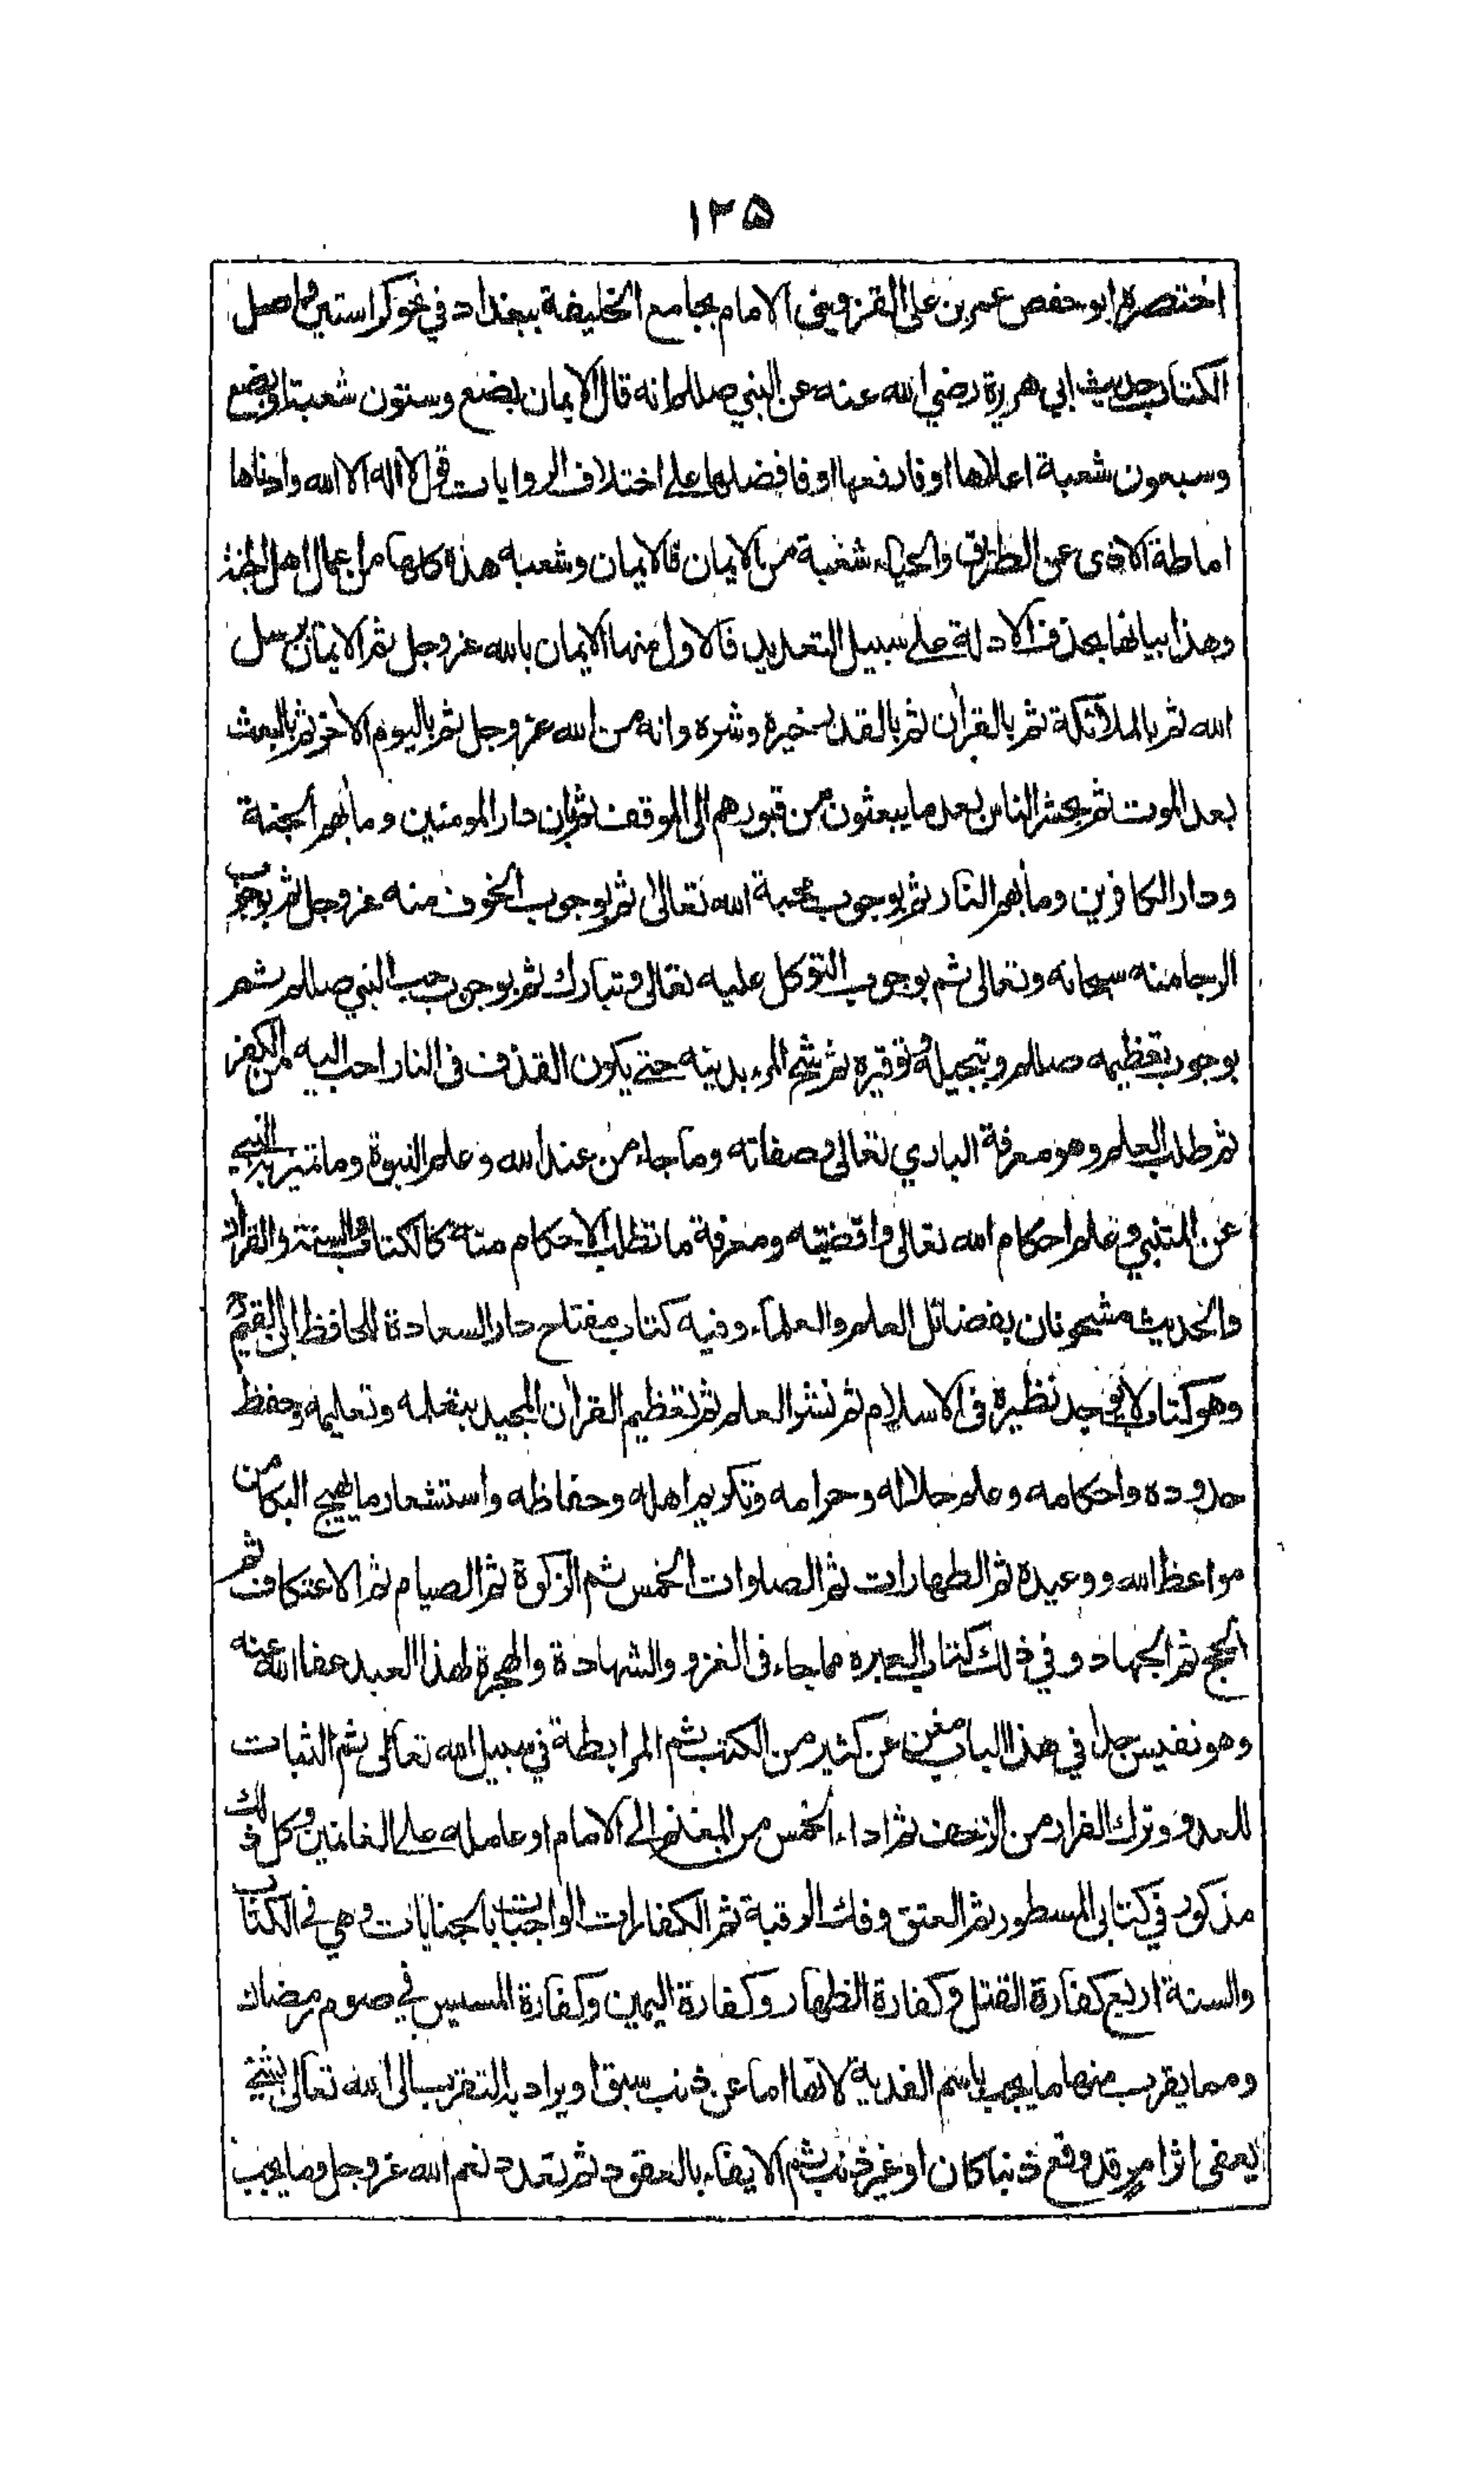 ١٢٥
اختصره ابو حفص عمر بن على القزويني الامام بجامع الخليفة ببغداد في نحو كراستين فاصل
الكتاب حديث ابي هريرة رضي الله عنه عن النبي صللم انه قال الايمان بضع وستون شعبة او بضع
وسبعون شعبة اعلاها او فارفعها او فافضلها على اختلاف الروايات قول لا اله الا الله وادناها
اماطة الاذى عن الطريق والحياء شعبة من الايمان فالايمان وشعبه هذه كلها من اعمال اهل الجنة
وهذا بيانها بحذف الادلة على سبيل التعديد فالاول منها الايمان بالله عز وجل ثم الايمان برسل
الله ثم بالملائكة ثم بالقرآن ثم بالقدر خيره وشره وانه من الله عز وجل ثم باليوم الآخر ثم بالبعث
بعد الموت ثم بحشر الناس بعد ما يبعثون من قبورهم الى الموقف ثم بان دار المومنين ومأبهم الجنة
ودار الكافرين ومأبهم النار ثم بوجوب محبة الله تعالى ثم بوجوب الخوف منه عز وجل ثم بوجوب
الرجا منه سبحانه وتعالى ثم بوجوب التوكل عليه تعالى وتبارك ثم بوجوب حب النبي صللم ثم
بوجوب تعظيمه صللم وتبجيله وتوقيره ثم شح المرء بدينه حتى يكون القذف فى النار احب اليه من الكفر
ثم طلب العلم وهو معرفة الباري تعالى وصفاته وما جاء من عند الله وعلم النبوة وما تميز به النبي
عن المتنبي وعلم احكام الله تعالى واقضيته ومعرفة ما تطلب الاحكام منه كالكتاب والسنة والقرآن
والحديث مشحونان بفضائل العلم والعلماء وفيه كتاب مفتاح دار السعادة للحافظ ابن القيم رح
وهو كتاب لا يوجد نظيره فى الاسلام ثم نشر العلم ثم تعظيم القرآن المجيد بتعلمه وتعليمه وحفظ
حدوده واحكامه وعلم حلاله وحرامه وتكريم اهله وحفاظه واستشعار ما يهيج البكا من
مواعظ الله ووعيده ثم الطهارات ثم الصلوات الخمس ثم الزكوة ثم الصيام ثم الاعتكاف ثم
الحج ثم الجهاد وفي ذلك كتاب العبره مما جاء فى الغزو والشهادة والهجرة لهذا العبد عفا الله عنه
وهو نفيس جدا في هذا الباب مغن عن كثير من الكتب ثم المرابطة في سبيل الله تعالى ثم الثبات
للعدو وترك الفرار من الزحف ثم اداء الخمس من المغنم الى الامام او عامله على الغانمين وكل ذلك
مذكور في كتابى المسطور ثم العتق وفك الرقبة ثم الكفارات الواجبات بالجنايات وهي في الكتاب
والسنة اربع كفارة القتل وكفارة الظهار وكفارة اليمين وكفارة المسيس في صوم رمضان
ومما يقرب منها ما يجب باسم الفدية لانها اما عن ذنب سبق او يراد به التقرب الى الله تعالى بشيء
يعفى اثر امر قد وقع ذنبا كان او غير ذنب ثم الايفاء بالعقود ثم تعدد نعم الله عز وجل وما يجب